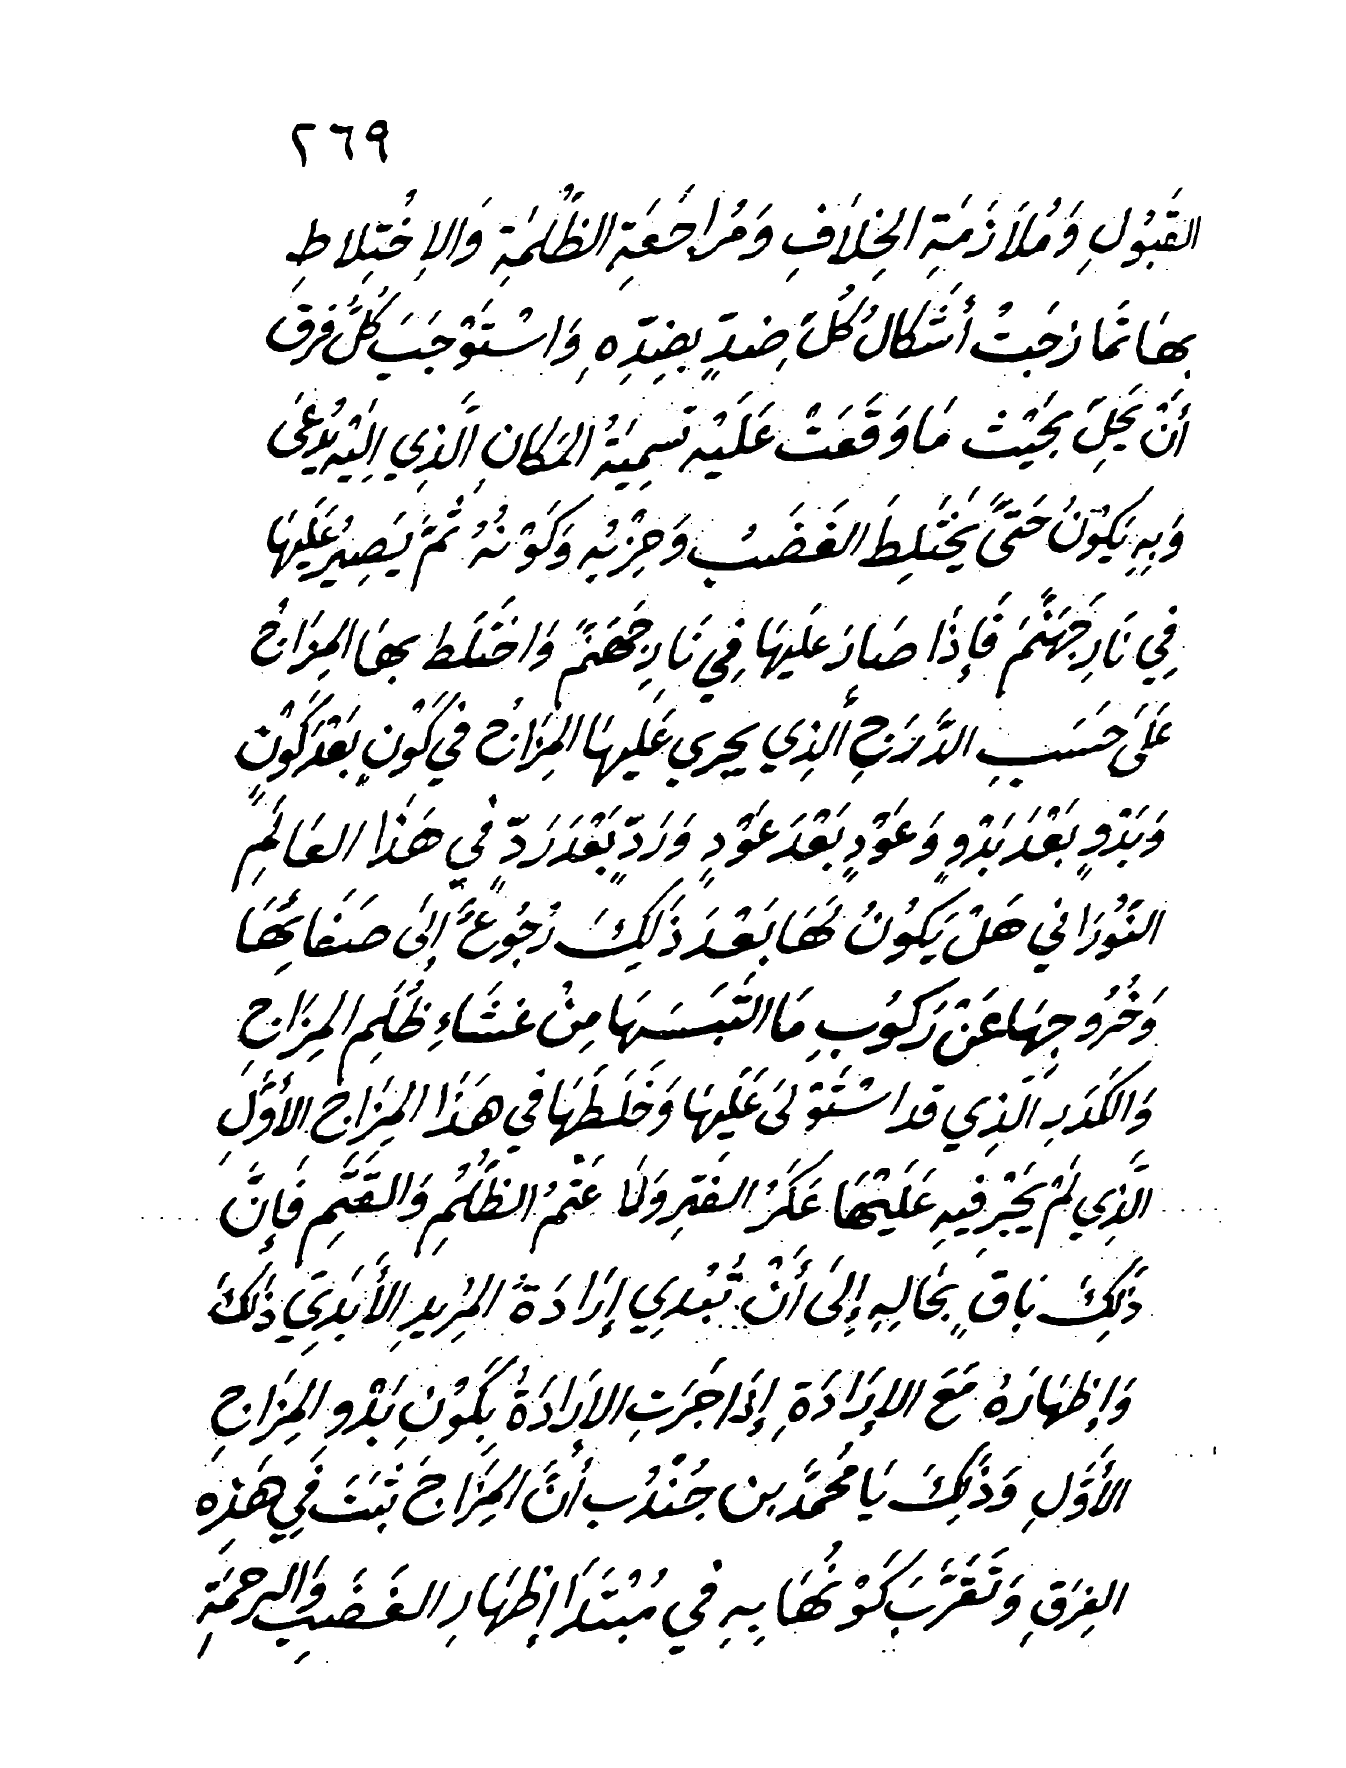 ٢٦٩
القَبُولِ وَمُلاَزَمَةِ الخِلاَفِ وَمُرَاجَعَةِ الظُّلْمَةِ وَالإِخْتِلاَطِ
بِهَا تَمَازَجَتْ أَشْكَالُ كُلِّ ضِدٍّ بِضِدِّهِ وَاسْتَوْجَبَ كُلُّ فِرَقٍ
أَنْ يَحِلَّ بِحَيْثُ مَا وَقَعَتْ عَلَيْهِ تَسْمِيَةُ المَكَانِ الَّذِي إِلَيْهِ يُدْعَى
وَبِهِ يَكُوْنُ حَتَّى يَخْتَلِطَ الغَضَبُ وَحِزْبُهُ وَكَوْنُهُ ثُمَّ يَصِيرُ عَلَيهَا
فِي نَارِ جَهَنَّمَ فَإِذَا صَارَ عَلَيهَا فِي نَارِ جَهَنَّمَ وَاخْتَلَط بِهَا المِزَاجُ
عَلَى حَسَبِ الدَّرَجِ الَّذِي يجرِي عَلَيهَا المِزَاجُ في كَوْنٍ بَعْدَ كَوْنٍ
وَبَدْوٍ بَعْدَ بَدْوٍ وَعَوْدٍ بَعْدَ عَوْدٍ وَرَدٍّ بَعْدَ رَدٍّ فِي هَذَا العَالَمِ
النُّوْرَانِي هَلْ يَكُونُ لَهَا بَعْدَ ذَلِكَ رُجُوعٌ إِلَى صَفَائِهَا
وَخُرُوجِهَا عَنْ رَكُوبِ مَا الْتَبَسَهَا مِنْ غشَاءِ ظُلَمِ المِزَاجِ
وَالكَدَرِ الَّذِي قد اسْتَوْلَى عَلَيهَا وَخَلَطَهَا فِي هَذَا المِزَاجِ الأَوَّلِ
الَّذِي لَمْ يَجْرِ فِيهِ عَلَيْهَا عَكَرُ القتر وَلاَ عَتْمُ الظُّلَمِ وَالقَتَمِ فَإِنَّ
ذَلِكَ بَاقٍ بِحَالِهِ إِلَى أَنْ تُبْدِي إِرَادَةُ المُرِيدِ الأَبَدِيِّ ذَلِكَ
وَإِظهَارَهُ مَعَ الإِرَادَةِ إِذَا جَرَتِ الإِرَادَةُ بِكَوْنِ بَدْوِ المِزَاجِ
الأَوَّلِ وَذَلِكَ يَا مُحَمَّدُ بن جُنْدُب أَنَّ المِزَاجَ ثَبَتَ فِي هَذِهِ
الفِرَقِ وَتَقَرَّبَ كَوْنُهَا بِهِ فِي مُبْتَدَا إِظهَارِ الغَضَبِ وَالرحمَةِ